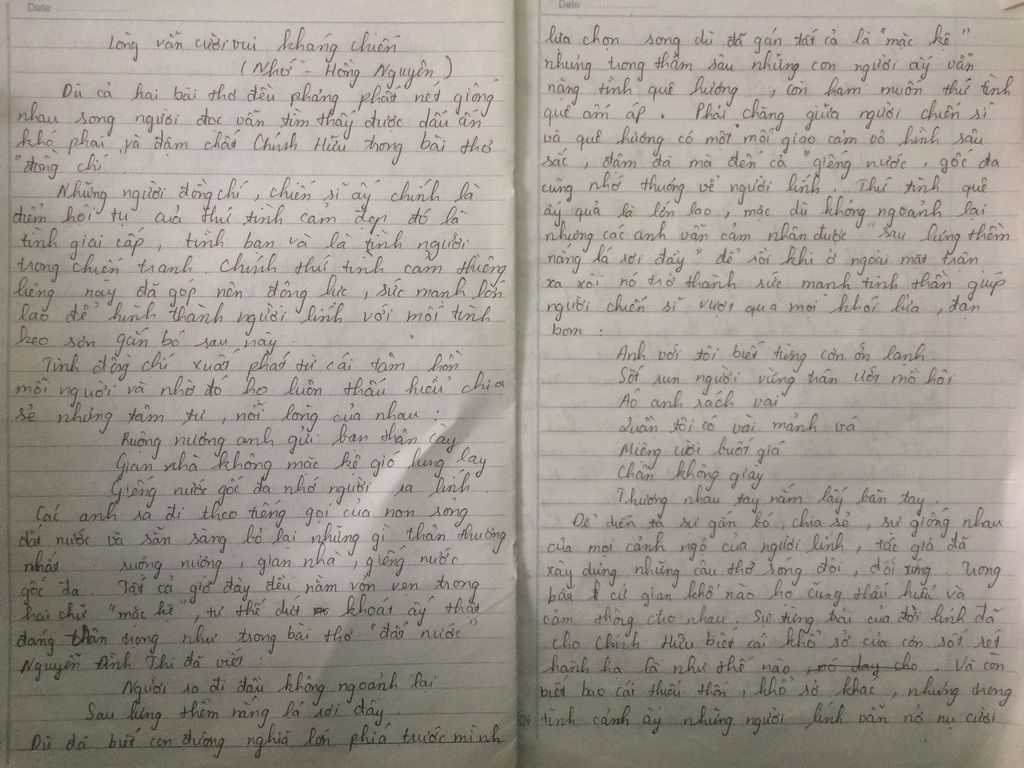 Date
Lòng vẫn cười vui kháng chiến
(Nhớ - Hồng Nguyên)
Dù cả hai bài thơ đều phảng phất nét giống
nhau song người đọc vẫn tìm thấy được dấu ấn
khó phai và đậm chất Chính Hữu trong bài thơ
"đồng chí"
Những người đồng chí, chiến sĩ ấy chính là
điểm hội tụ của thứ tình cảm đẹp đó là
tình giai cấp, tình bạn và là tình người
trong chiến tranh. Chính thứ tình cảm thiêng
liêng này đã góp nên động lực, sức mạnh lớn
lao để hình thành người lính với mối tình
keo sơn gắn bó sau này.
Tình đồng chí xuất phát từ cái tâm hồn
mỗi người và nhờ đó họ luôn thấu hiểu chia
sẻ những tâm tư, nỗi lòng của nhau:
Ruộng nương anh gửi bạn thân cày
Gian nhà không mặc kệ gió lung lay
Giếng nước gốc đa nhớ người ra lính.
Các anh ra đi theo tiếng gọi của non sông
đất nước và sẵn sàng bỏ lại những gì thân thương
nhất ruộng nương, gian nhà, giếng nước
gốc đa. Tất cả giờ đây đều nằm vẹn vẹn trong
hai chữ "mặc kệ", tư thế dứt khoát ấy thật
đáng trân trọng như trong bài thơ "đất nước"
Nguyễn Đình Thi đã viết:
Người ra đi đầu không ngoảnh lại
Sau lưng thềm nắng lá rơi đầy
Dù đã biết con đường nghĩa lớn phía trước mình
Date
lựa chọn song dù đã gán tất cả là "mặc kệ"
nhưng trong thâm sâu những con người ấy vẫn
nặng tình quê hương, còn ham muốn thứ tình
quê ấm áp. Phải chăng giữa người chiến sĩ
và quê hương có một mối giao cảm vô hình sâu
sắc, đậm đà mà đến cả "giếng nước, gốc đa
cũng nhớ thương về người lính. Thứ tình quê
ấy quả là lớn lao, mặc dù không ngoảnh lại
nhưng các anh vẫn cảm nhận được "sau lưng thềm
nắng lá rơi đầy" để rồi khi ở ngoài mặt trận
xa xôi nó trở thành sức mạnh tinh thần giúp
người chiến sĩ vượt qua mọi khói lửa, đạn
bom:
Anh với tôi biết từng cơn ớn lạnh
Sốt run người vừng trán ướt mồ hôi
Áo anh rách vai
Quần tôi có vài mảnh vá
Miệng cười buốt giá
Chân không giày
Thương nhau tay nắm lấy bàn tay.
Để diễn tả sự gắn bó, chia sẻ, sự giống nhau
của mọi cảnh ngộ của người lính, tác giả đã
xây dựng những câu thơ sóng đôi, đối xứng. Trong
bất cứ gian khổ nào họ cũng thấu hiểu và
cảm thông cho nhau. Sự từng trải của đời lính đã
cho Chính Hữu biết cái khổ sở của cơn sốt rét
hành hạ là như thế nào. Và còn
biết bao cái thiếu thốn, khổ sở khác, nhưng trong
tình cảnh ấy những người lính vẫn nở nụ cười